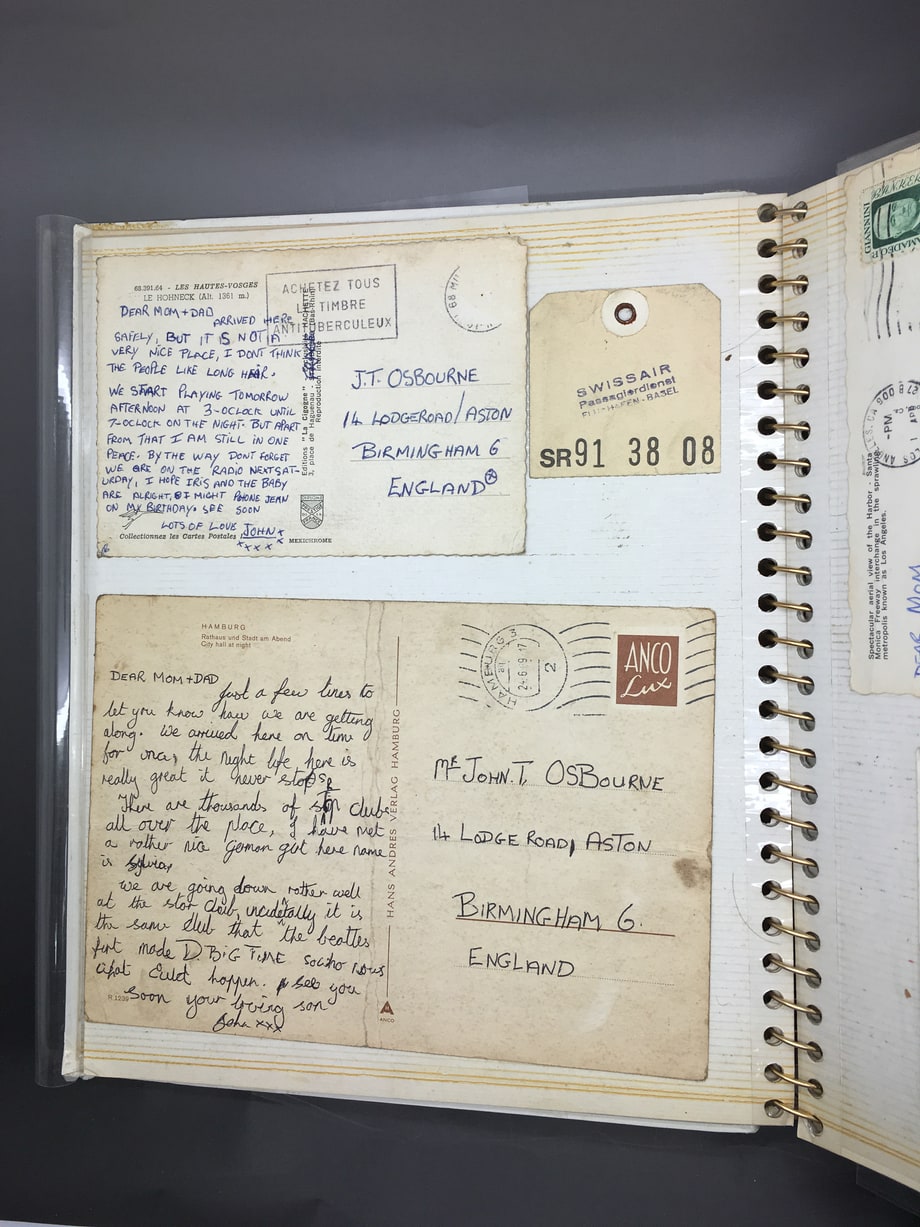 68.391.64 - LES HAUTES-VOSGES
LE HOHNECK (Alt. 1361 m.)
ACHETEZ TOUS
LE TIMBRE
ANTITUBERCULEUX
DEAR MOM+DAD
ARRIVED HERE
SAFELY, BUT IT IS NOT A
VERY NICE PLACE, I DONT THINK
THE PEOPLE LIKE LONG HAIR.
WE START PLAYING TOMORROW
AFTERNOON AT 3-OCLOCK UNTIL
7-OCLOCK ON THE NIGHT. BUT APART
FROM THAT I AM STILL IN ONE
PEACE. BY THE WAY DONT FORGET
WE ARE ON THE RADIO NEXT SAT-
URDAY, I HOPE IRIS AND THE BABY
ARE ALRIGHT, I MIGHT PHONE JEAN
ON MY BIRTHDAY. SEE SOON
LOTS OF LOVE JOHN x
x x x x
Collectionnez les Cartes Postales
MEXICHROME
Editions "La Cigogne"
3, place de Haguenau
Reproduction interdite
J.T. OSBOURNE
14 LODGEROAD/ASTON
BIRMINGHAM 6
ENGLAND
SWISSAIR
Passagierdienst
FLUGHAFEN-BASEL
SR91 38 08
HAMBURG
Rathaus und Stadt am Abend
City hall at night
DEAR MOM+DAD
Just a few lines to
let you know how we are getting
along. We arrived here on time
for once, the night life here is
really great it never stops
There are thousands of clubs
all over the place, I have met
a rather nice german girl here name
is sylvia,
we are going down rather well
at the star club, incidetally it is
the same club that the beatles
first made D. BIG TIME so who nows
what could happen. see you
soon your loving son
John xxx
R 1239
HANS ANDRES VERLAG HAMBURG
ANCO
HAMBURG
2
ANCO
Lux
Mr JOHN.T. OSBOURNE
14 LODGE ROAD, ASTON
BIRMINGHAM 6.
ENGLAND
GIANNINI
Spectacular aerial view of the Harbor - Santa
Monica Freeway interchange in the sprawling
metropolis known as Los Angeles.
DEAR MOM